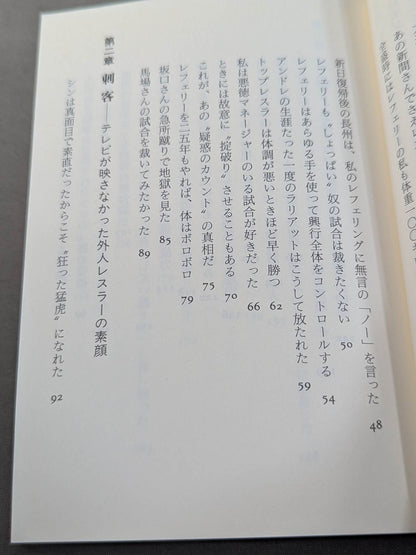 あの新聞さんでさえ
新日復帰後の長州は、私のレフェリングに無言の「ノー」を言った 48
レフェリーも〝しょっぱい〟奴の試合は裁きたくない 50
レフェリーはあらゆる手を使って興行全体をコントロールする 54
アンドレの生涯たった一度のラリアットはこうして放たれた 59
トップレスラーは体調が悪いときほど早く勝つ 62
私は悪徳マネージャーのいる試合が好きだった 66
ときには故意に〝掟破り〟させることもある 70
これが、あの〝疑惑のカウント〟の真相だ 75
レフェリーを二五年もやれば、体はボロボロ 79
坂口さんの急所蹴りで地獄を見た 85
馬場さんの試合を裁いてみたかった 89
第二章 刺客──テレビが映さなかった外人レスラーの素顔
シンは真面目で素直だったからこそ〝狂った猛虎〟になれた 92